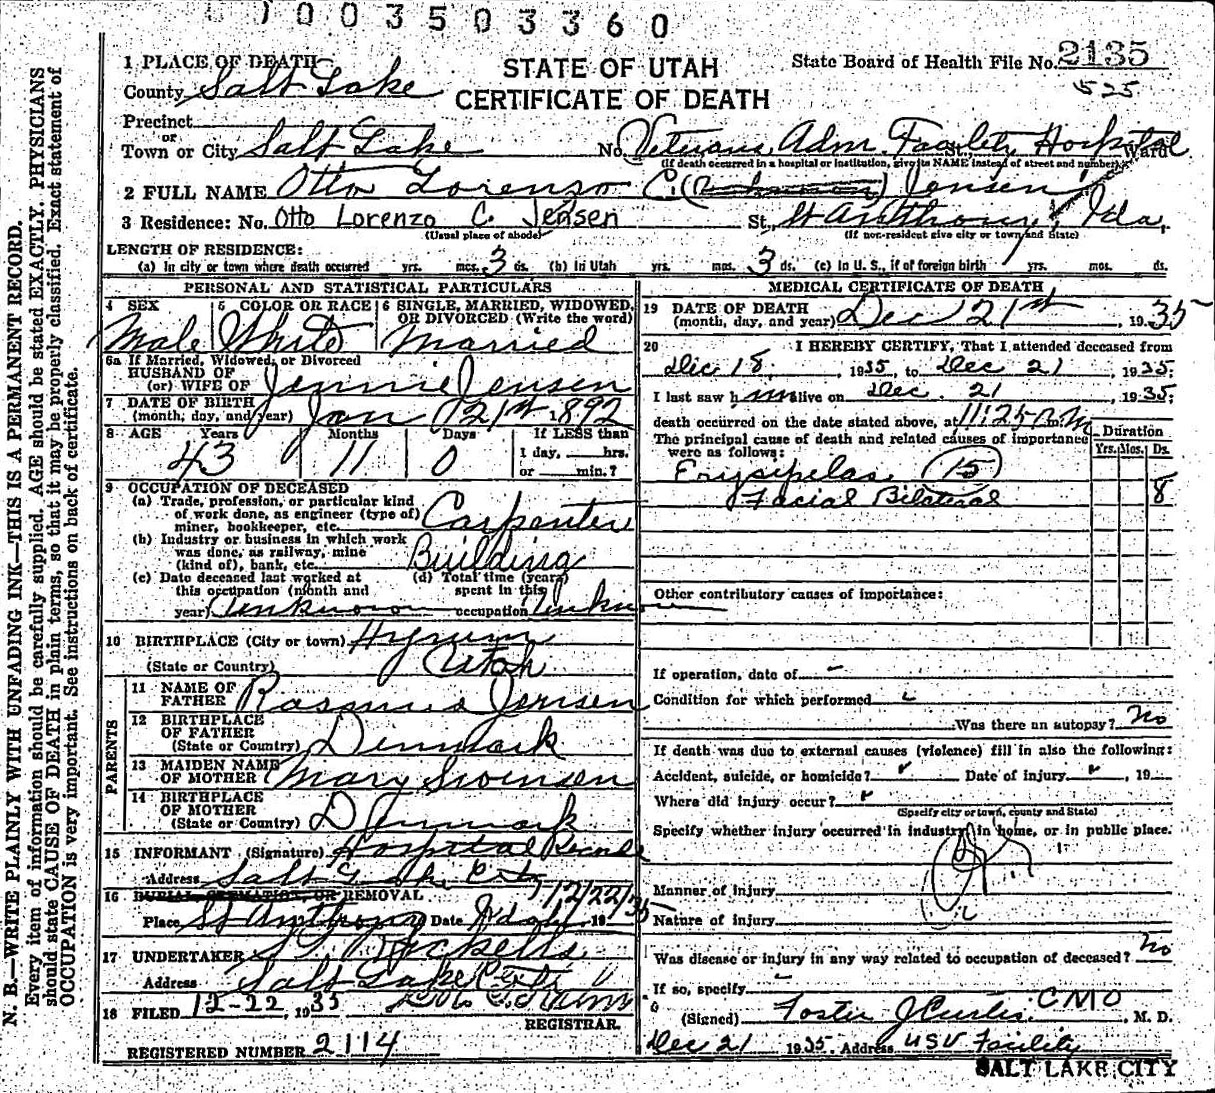 1003503360
1 PLACE OF DEATH
County Salt Lake
STATE OF UTAH
CERTIFICATE OF DEATH
State Board of Health File No. 2135
525
Precinct
or
Town or City Salt Lake No. Veterans Adm. Facility Hospital St., Ward
(If death occurred in a hospital or institution, give its NAME instead of street and number)
2 FULL NAME Otto Lorenzo C. Jensen
3 Residence: No. Otto Lorenzo C. Jensen St., St Anthony, Ida,
(Usual place of abode) (If non-resident give city or town and State)
LENGTH OF RESIDENCE:
(a) In city or town where death occurred yrs. mos. 3 ds. (b) In Utah yrs. mos. 3 ds. (c) In U. S., if of foreign birth yrs. mos. ds.
PERSONAL AND STATISTICAL PARTICULARS
4 SEX
Male
5 COLOR OR RACE
White
6 SINGLE, MARRIED, WIDOWED,
OR DIVORCED (Write the word)
Married
6a If Married, Widowed, or Divorced
HUSBAND OF
(or) WIFE OF Jennie Jensen
7 DATE OF BIRTH
(month, day, and year) Jan 21st 1892
8 AGE Years Months Days If LESS than
43 11 0 1 day, hrs.
or min.?
9 OCCUPATION OF DECEASED
(a) Trade, profession, or particular kind
of work done, as engineer (type of)
miner, bookkeeper, etc. Carpenter
(b) Industry or business in which work
was done, as railway, mine
(kind of), bank, etc. Building
(c) Date deceased last worked at
this occupation (month and
year) Unknown
(d) Total time (years)
spent in this
occupation Unknown
10 BIRTHPLACE (City or town) Hyrum
(State or Country) Utah
PARENTS
11 NAME OF
FATHER Rasmus Jensen
12 BIRTHPLACE
OF FATHER
(State or Country) Denmark
13 MAIDEN NAME
OF MOTHER Mary Swensen
14 BIRTHPLACE
OF MOTHER
(State or Country) Denmark
15 INFORMANT (Signature) Hospital Records
Address Salt Lake City
16 BURIAL, CREMATION, OR REMOVAL
Place St Anthony Date Idaho 12/22/1935
17 UNDERTAKER Rickells
Address Salt Lake City U
18 FILED 12-22, 1935
REGISTRAR
REGISTERED NUMBER 2114
MEDICAL CERTIFICATE OF DEATH
19 DATE OF DEATH
(month, day, and year) Dec 21st, 1935
20 I HEREBY CERTIFY, That I attended deceased from
Dec 18, 1935, to Dec 21, 1935;
I last saw him alive on Dec. 21, 1935;
death occurred on the date stated above, at 11:25 P.M
The principal cause of death and related causes of importance
were as follows:
Duration
Yrs. Mos. Ds.
Erysipelas 15
Facial Bilateral 8
Other contributory causes of importance:
If operation, date of -
Condition for which performed
Was there an autopsy? No
If death was due to external causes (violence) fill in also the following:
Accident, suicide, or homicide? Date of injury , 19
Where did injury occur?
(Specify city or town, county and State)
Specify whether injury occurred in industry, in home, or in public place.
Manner of injury
Nature of injury
Was disease or injury in any way related to occupation of deceased? No
If so, specify -
(Signed) Foster J Curtis CMO, M. D.
Dec 21 1935 Address USV Facility
SALT LAKE CITY
N. B.—WRITE PLAINLY WITH UNFADING INK—THIS IS A PERMANENT RECORD.
Every item of information should be carefully supplied. AGE should be stated EXACTLY. PHYSICIANS
should state CAUSE OF DEATH in plain terms, so that it may be properly classified. Exact statement of
OCCUPATION is very important. See instructions on back of certificate.